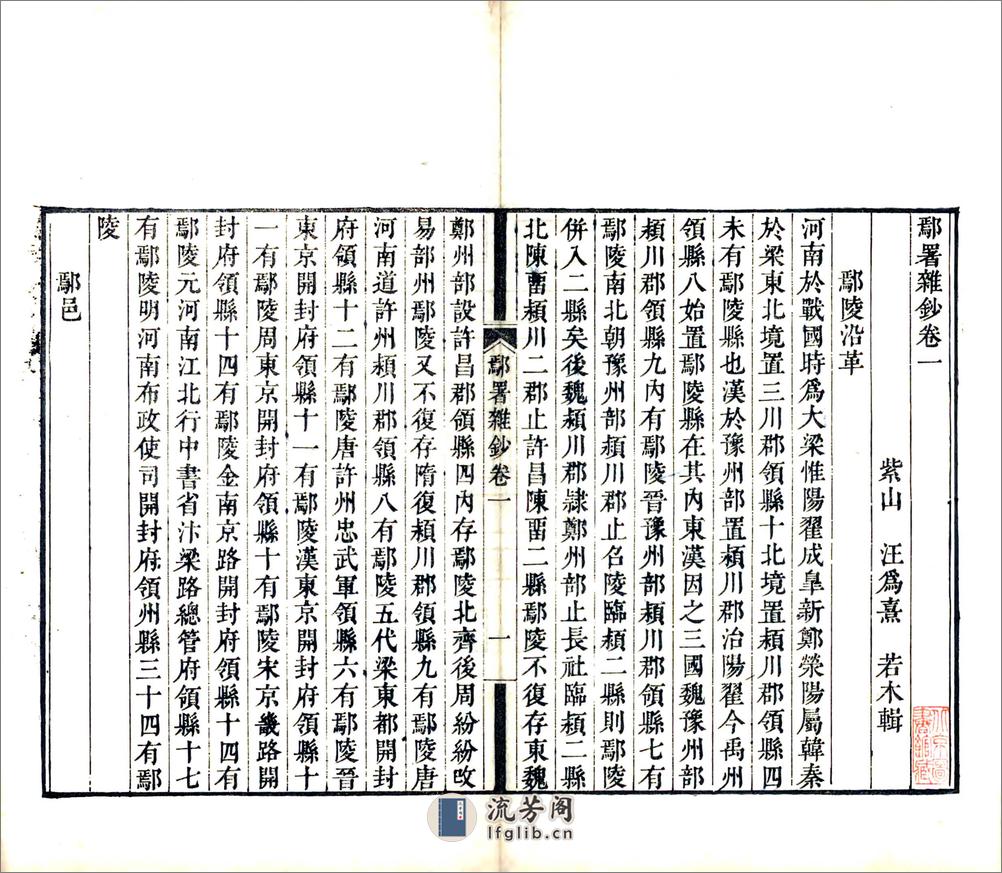 鄢署雜鈔卷一
紫山　汪爲熹　若木輯
鄢陵沿革
河南於戰國時爲大梁惟陽翟成臯新鄭滎陽屬韓秦
於梁東北境置三川郡領縣十北境置潁川郡領縣四
未有鄢陵縣也漢於豫州部置潁川郡治陽翟今禹州
領縣八始置鄢陵縣在其內東漢因之三國魏豫州部
潁川郡領縣九內有鄢陵晉豫州部潁川郡領縣七有
鄢陵南北朝豫州部潁川郡止召陵臨潁二縣則鄢陵
併入二縣矣後魏潁川郡隷鄭州部止長社臨潁二縣
北陳畱潁川二郡止許昌陳畱二縣鄢陵不復存東魏
鄢署雜鈔卷一
一
鄭州部設許昌郡領縣四內存鄢陵北齊後周紛紛改
易部州鄢陵又不復存隋復潁川郡領縣九有鄢陵唐
河南道許州潁川郡領縣八有鄢陵五代梁東都開封
府領縣十二有鄢陵唐許州忠武軍領縣六有鄢陵晉
東京開封府領縣十一有鄢陵漢東京開封府領縣十
一有鄢陵周東京開封府領縣十有鄢陵宋京畿路開
封府領縣十四有鄢陵金南京路開封府領縣十四有
鄢陵元河南江北行中書省汴梁路總管府領縣十七
有鄢陵明河南布政使司開封府領州縣三十四有鄢
陵
鄢邑
流芳阁
lfglib.cn